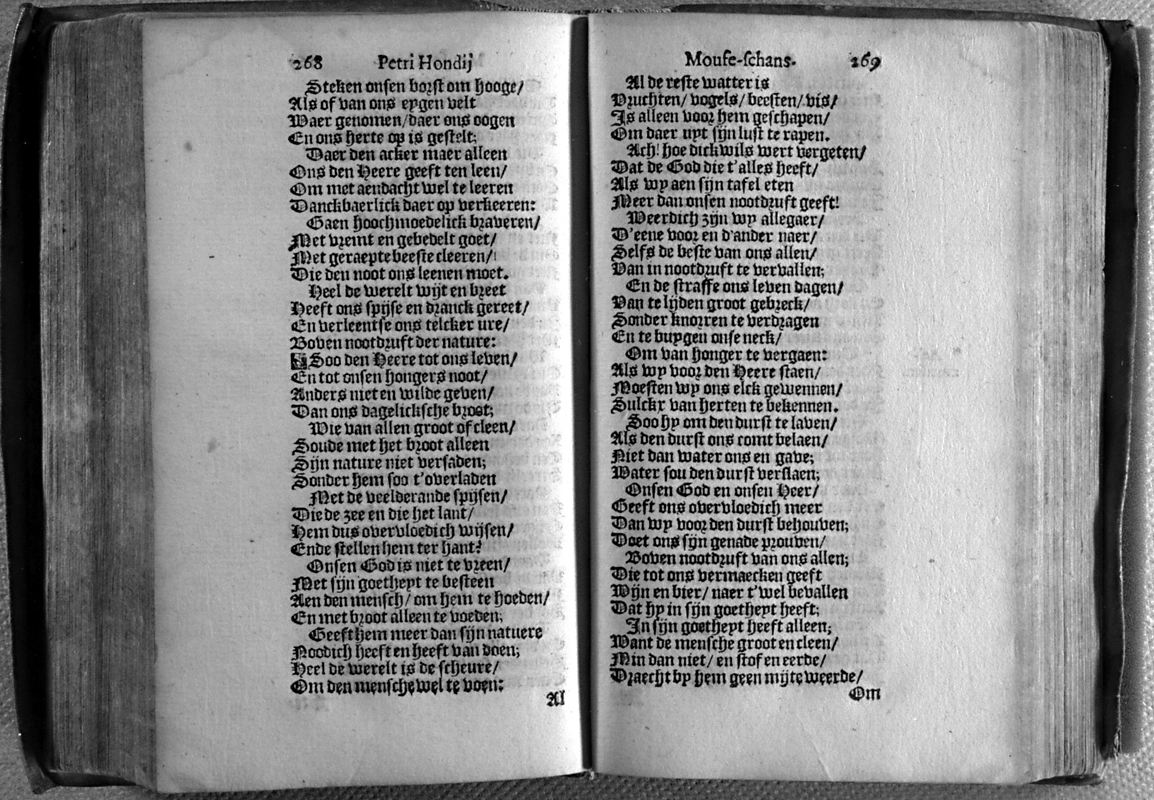 268 Petri Hondij
Steken onsen borst om hooge/
Als of van ons eygen velt
Waer genomen/daer ons oogen
En ons herte op is gestelt;
Daer den acker maer alleen
Ons den Heere geeft ten leen/
Om met aendacht wel te leeren
Danckbaerlick daer op verkeeren:
Gaen hoochmoedelick braveren/
Met vremt en gebedelt goet/
Met geraepte beeste cleeren/
Die den noot ons leenen moet.
Heel de werelt wijt en breet
Heeft ons spijse en dranck gereet/
En verleentse ons telcker ure/
Boven nootdruft der nature:
Soo den Heere tot ons leven/
En tot onsen hongers noot/
Anders niet en wilde geven/
Dan ons dagelicksche broot;
Wie van allen groot of cleen/
Soude met het broot alleen
Sijn nature niet versaden;
Sonder hem soo t'overladen
Met de veelderande spijsen/
Die de zee en die het lant/
Hem dus overvloedich wijsen/
Ende stellen hem ter hant?
Onsen God is niet te vreen/
Met sijn goetheyt te besteen
Aen den mensch/ om hem te hoeden/
En met broot alleen te voeden;
Geeft hem meer dan sijn natuere
Noodich heeft en heeft van doen;
Heel de werelt is de scheure/
Om den mensche wel te voen:
Al
Mouse-schans. 269
Al de reste watter is
Vruchten/ vogels/ beesten/ vis/
Is alleen voor hem geschapen/
Om daer uyt sijn lust te rapen.
Ach! hoe dickwils wert vergeten/
Dat de God die t'alles heeft/
Als wy aen sijn tafel eten
Meer dan onsen nootdruft geeft!
Weerdich zijn wy allegaer/
D'eene voor en d'ander naer/
Selfs de beste van ons allen/
Van in nootdruft te vervallen;
En de straffe ons leven dagen/
Van te lijden groot gebreck/
Sonder knorren te verdragen
En te buygen onse neck/
Om van honger te vergaen:
Als wy voor den Heere staen/
Moesten wy ons elck gewennen/
Sulckx van herten te bekennen.
Soo hy om den durst te laven/
Als den durst ons comt belaen/
Niet dan water ons en gave;
Water sou den durst verslaen;
Onsen God en onsen Heer/
Geeft ons overvloedich meer
Dan wy voor den durst behouven;
Doet ons sijn genade prouven/
Boven nootdruft van ons allen;
Die tot ons vermaecken geeft
Wijn en bier/ naer t'wel bevallen
Dat hy in sijn goetheyt heeft;
In sijn goetheyt heeft alleen;
Want de mensche groot en cleen/
Min dan niet/ en stof en eerde/
Draecht by hem geen mijte weerde/
Om